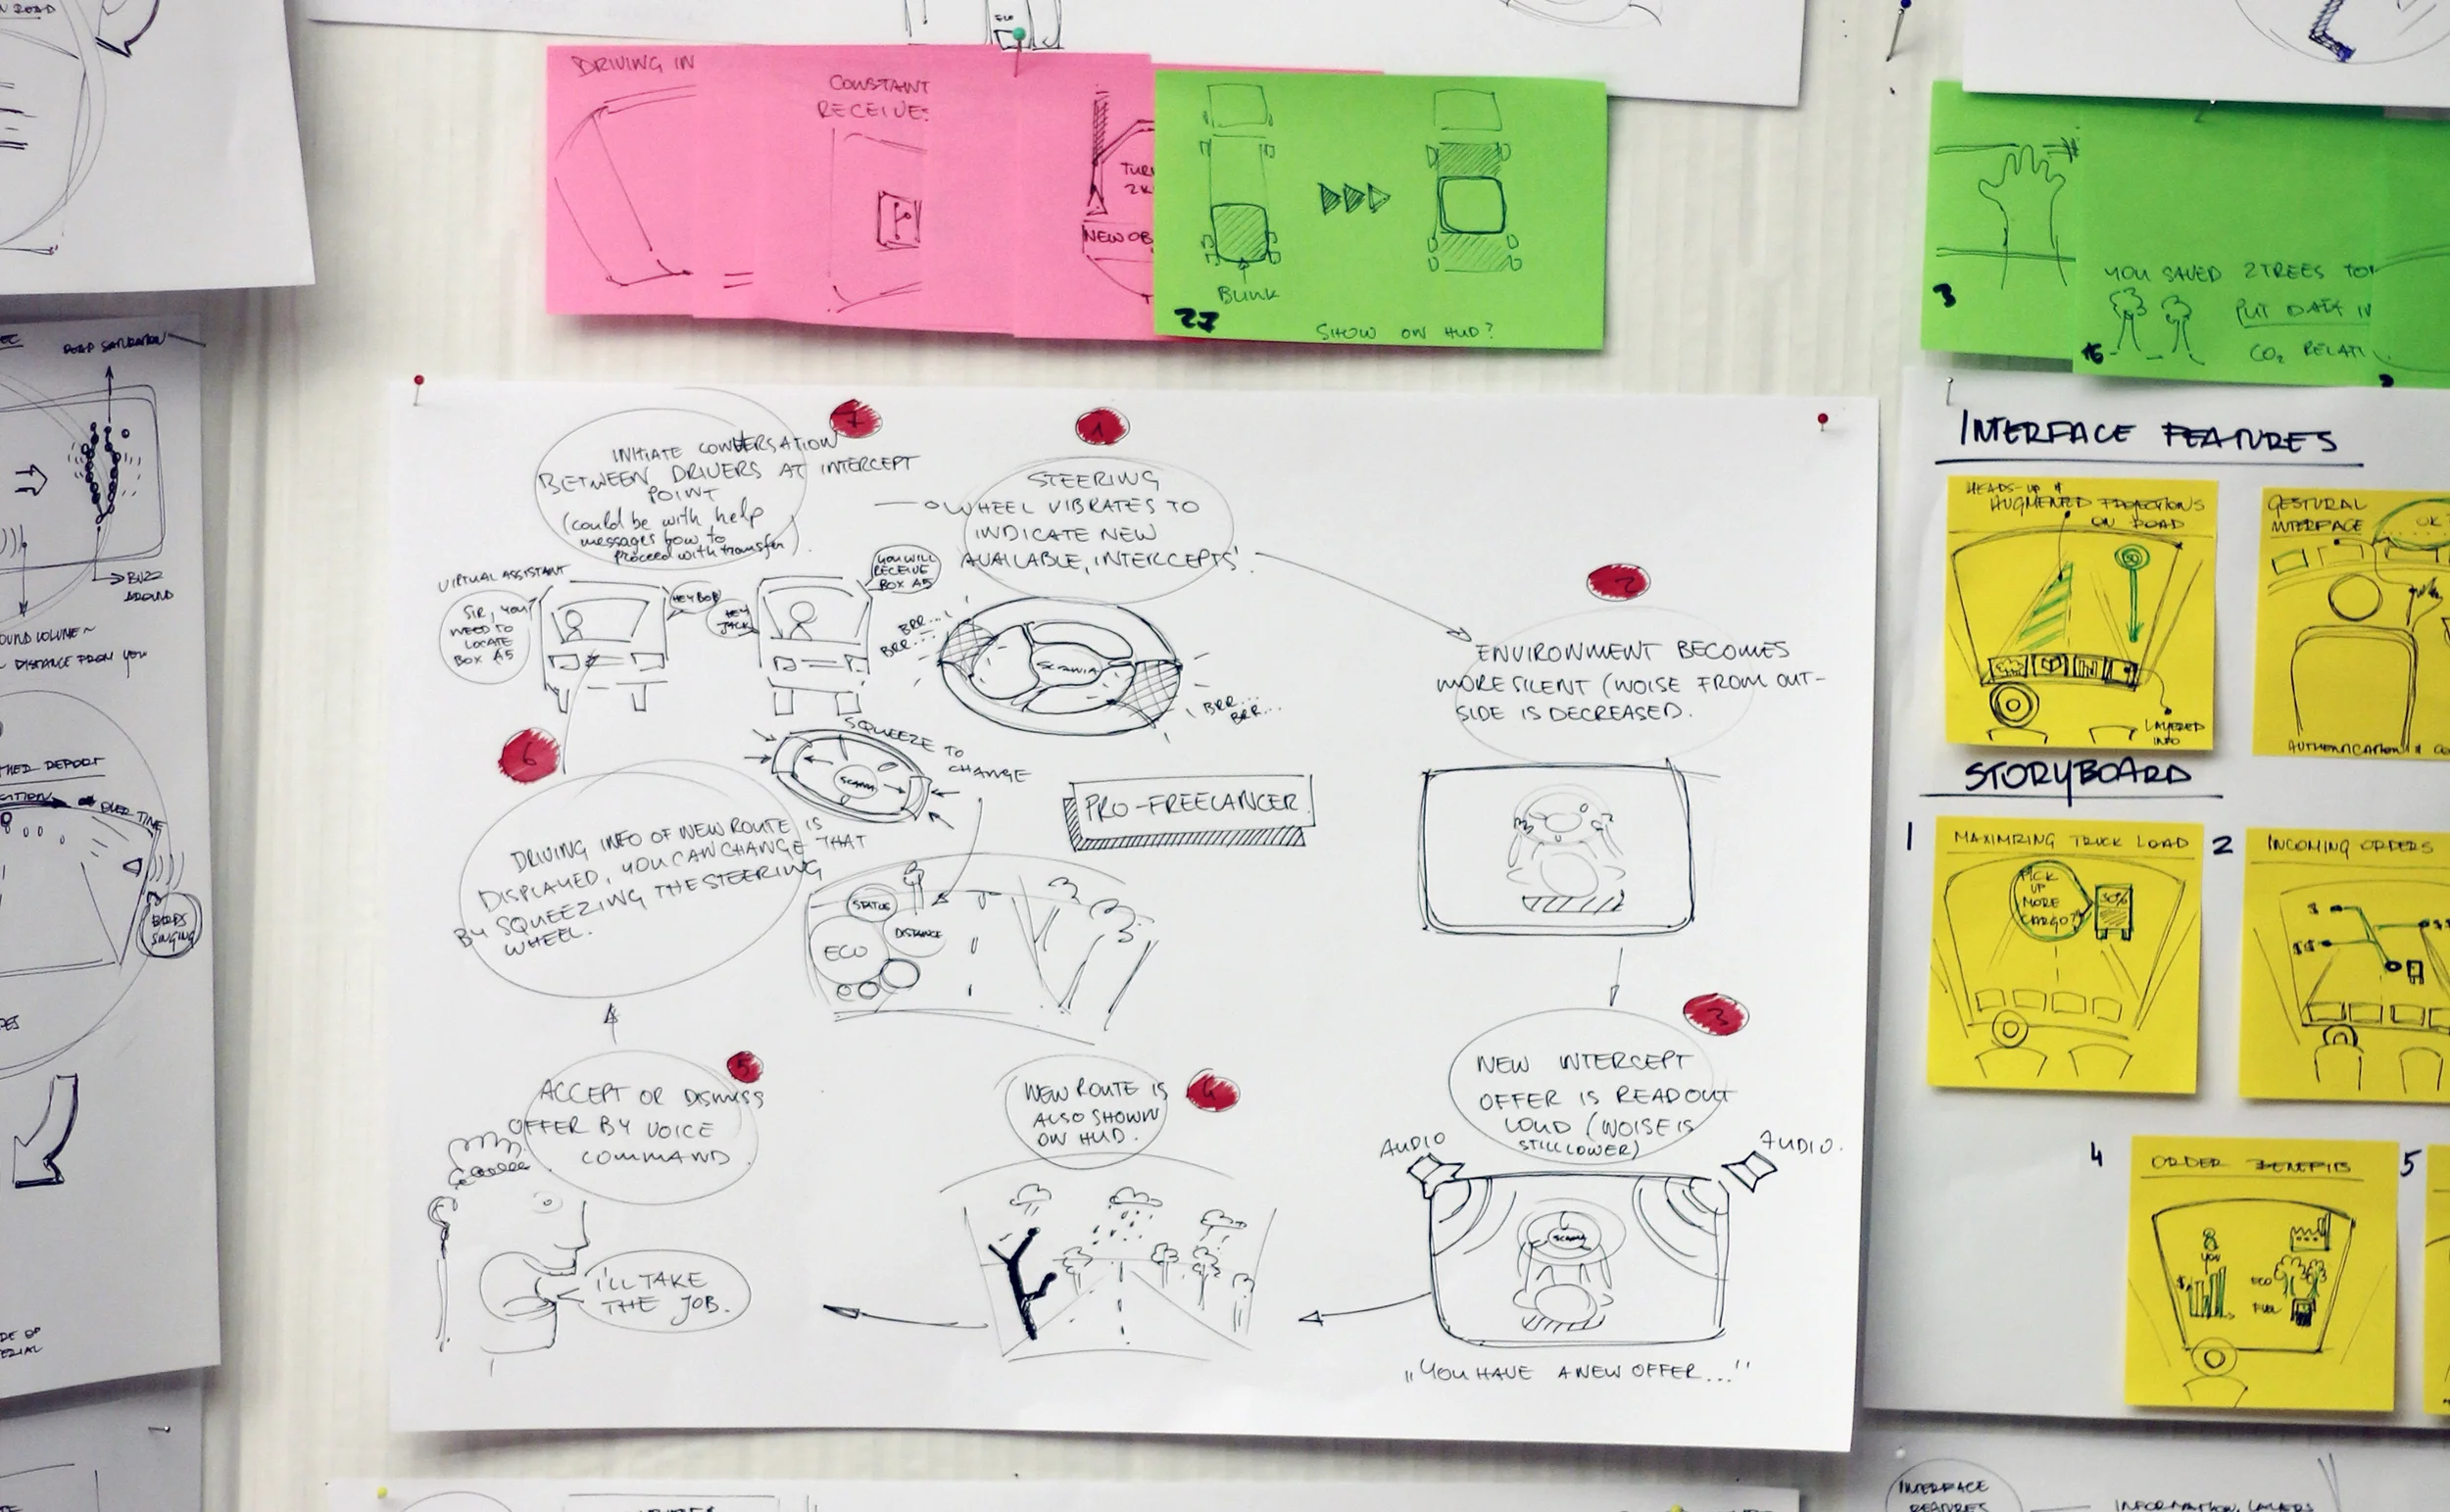 DRIVING IN
CONSTANT
RECEIVE:
TURN
2K
NEW OB
BLINK
27
SHOW ON HUD?
3
YOU SAVED 2 TREES TO
PUT DATA IN
CO2 RELATI
16
ROAD SATURATION
BUZZ
AROUND
OUND VOLUME ~
DISTANCE FROM YOU
OVER TIME
BIRDS
SINGING
DE OF
ERIAL
7
INITIATE CONVERSATION
BETWEEN DRIVERS AT INTERCEPT
POINT
(could be with help
messages how to
proceed with transfer)
VIRTUAL ASSISTANT
SIR, YOU
NEED TO
LOCATE
BOX A5
HEY BOB
HEY
JACK
YOU WILL
RECEIVE
BOX A5
1
STEERING
WHEEL VIBRATES TO
INDICATE NEW
AVAILABLE, INTERCEPTS'.
BRR...
BRR...
SCANIA
BRR...
BRR...
2
ENVIRONMENT BECOMES
MORE SILENT (NOISE FROM OUT-
SIDE IS DECREASED.
PRO-FREELANCER
3
NEW INTERCEPT
OFFER IS READ OUT
LOUD (NOISE IS
STILL LOWER)
AUDIO
AUDIO.
SCANIA
„YOU HAVE A NEW OFFER..."
4
NEW ROUTE IS
ALSO SHOWN
ON HUD.
5
ACCEPT OR DISMISS
OFFER BY VOICE
COMMAND
I'LL TAKE
THE JOB.
6
DRIVING INFO OF NEW ROUTE IS
DISPLAYED, YOU CAN CHANGE THAT
BY SQUEEZING THE STEERING
WHEEL.
SQUEEZE TO
CHANGE
SCANIA
STATUS
ECO
DISTANCE
INTERFACE FEATURES
HEADS-UP &
AUGMENTED PROJECTIONS
ON ROAD
LAYERED
INFO
GESTURAL
INTERFACE
OK
AUTHENTICATION &
STORYBOARD
1
MAXIMIZING TRUCK LOAD
PICK
UP
MORE
CARGO?
30%
2
INCOMING ORDERS
4
ORDER BENEFITS
YOU
ECO
FUEL
5
INTERFACE
FEATURES
INFORMATION LAYERS